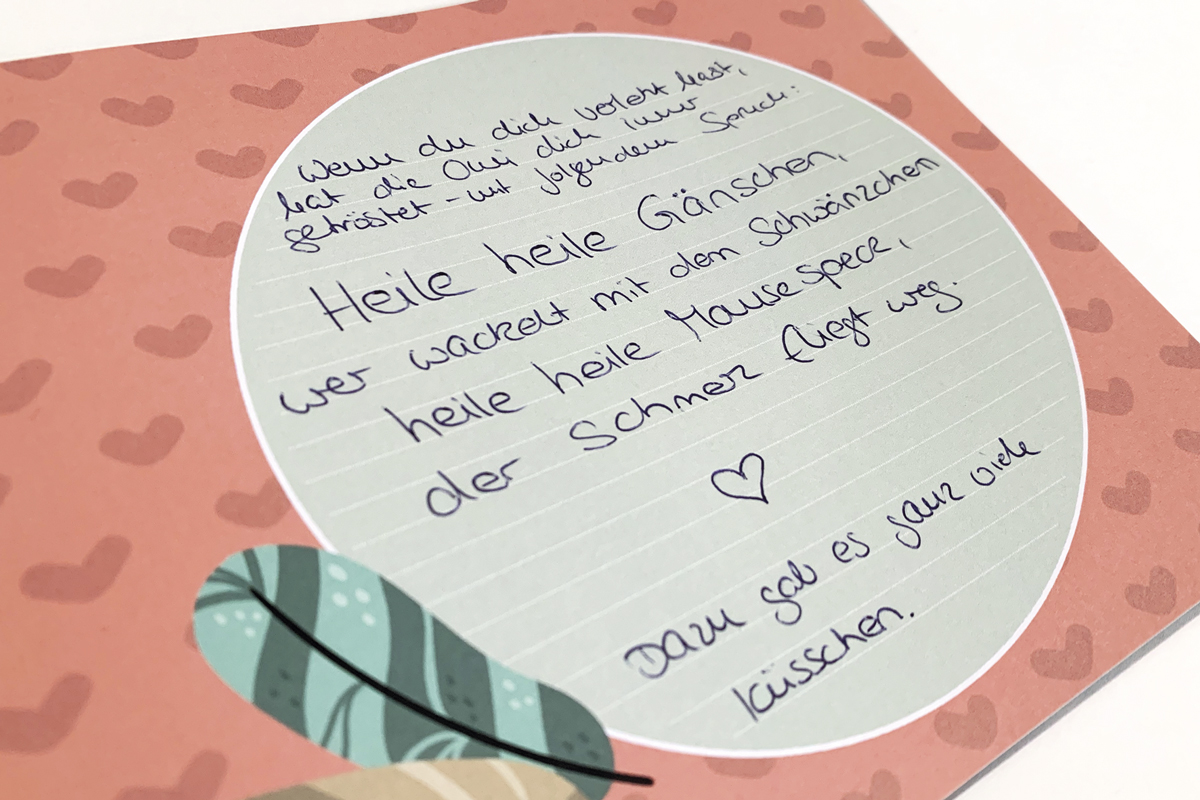 Wenn du dich verletzt hast,
hat die Omi dich immer
getröstet - mit folgendem Spruch:
Heile heile Gänschen,
wer wackelt mit dem Schwänzchen
heile heile Mausespeck,
der Schmerz fliegt weg.
Dazu gab es ganz viele
Küsschen.